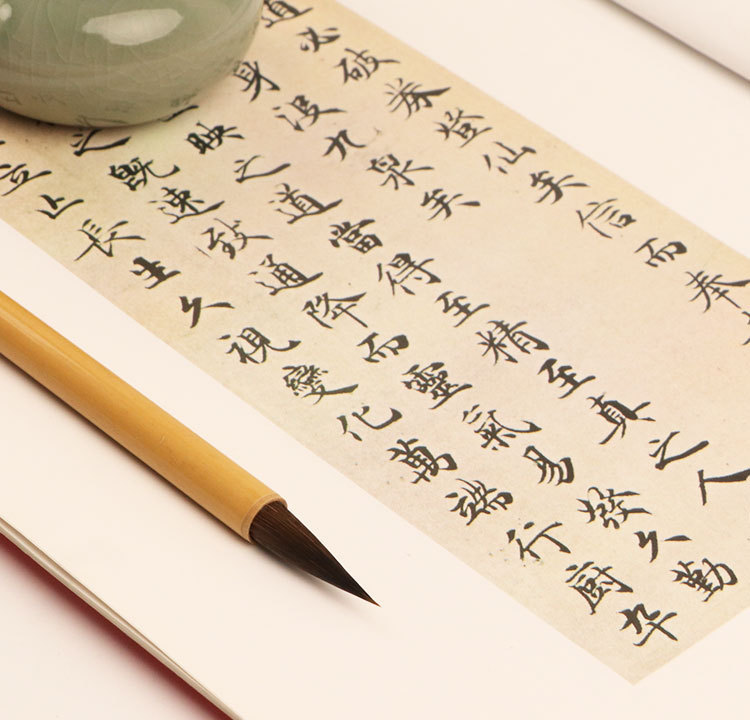 道必破券登仙矣信而奉
身沒九泉矣
映之道當得至精至真之人
之既速致通降而靈氣易發久勤
立亡長生久視變化萬端行廚卒